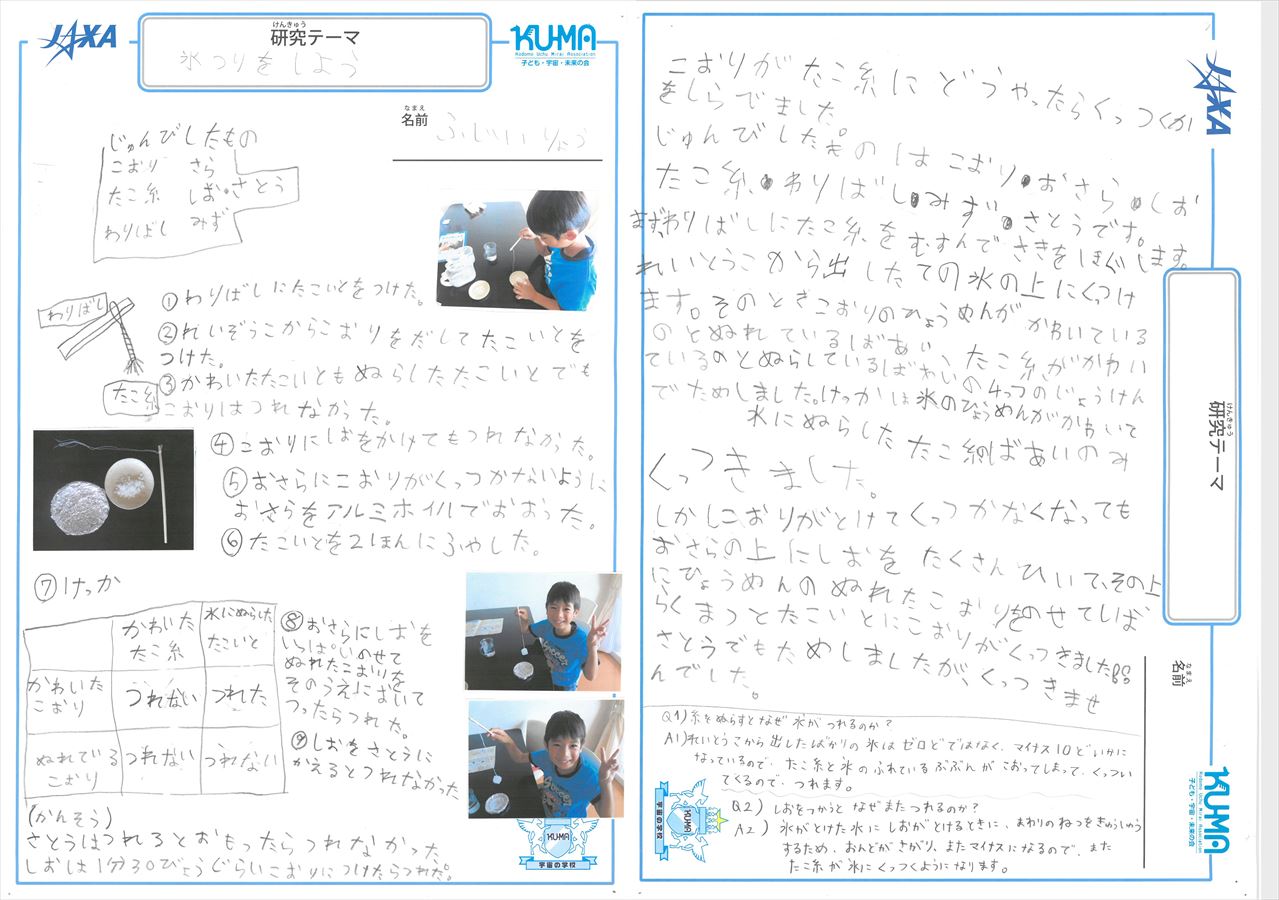 JAXA
けんきゅう
研究テーマ
氷つりをしよう
KUMA
Kodomo Uchu Mirai Association
子ども・宇宙・未来の会
なまえ
名前
ふじい りょう
じゅんびしたもの
こおり さら
たこ糸 しお・さとう
わりばし みず
わりばし
たこ糸
①わりばしにたこいとをつけた。
②れいぞうこからこおりをだしてたこいとを
つけた。
③かわいたたこいともぬらしたたこいとでも
こおりはつれなかった。
④こおりにしおをかけてもつれなかった。
⑤おさらにこおりがくっつかないように
おさらをアルミホイルでおおった。
⑥たこいとを2ほんにふやした。
⑦けっか
かわいた
たこ糸
水にぬらした
たこいと
かわいた
こおり
つれない
つれた
ぬれてる
こおり
つれない
つれない
⑧おさらにしおを
いっぱいのせて
ぬれたこおりを
そのうえにおいて
つったらつれた。
⑨しおをさとうに
かえるとつれなかった
(かんそう)
さとうはつれるとおもったらつれなかった。
しおは1分30びょうぐらいこおりにつけたらつれた。
KUMA
宇宙の学校
こおりがたこ糸にどうやったらくっつくか
をしらでました
じゅんびしたものはこおり・おさら・しお
たこ糸・わりばし・みず・さとうです。
まず、わりばしにたこ糸をむすんでさきをほぐします。
れいとうこから出したての氷の上にくっつけ
ます。そのときこおりのひょうめんがかわいている
のとぬれているばあい、たこ糸がかわい
ているのとぬらしているばあいの4つのじょうけん
でためしました。けっかは氷のひょうめんがかわいて
水にぬらしたたこ糸のばあいのみ
くっつきました。
しかしこおりがとけてくっつかなくなっても
おさらの上にしおをたくさんひいて、その上
にひょうめんのぬれたこおりをのせてしば
らくまつとたこいとにこおりがくっつきました。
さとうでもためしましたが、くっつきませ
んでした。
Q1)糸をぬらすとなぜ氷がつれるのか?
A1)れいとうこから出したばかりの氷はゼロどではなく、マイナス10どいかに
なっているので、たこ糸と氷のふれているぶぶんがこおってしまって、くっつい
てくるので、つれます。
Q2)しおをつかうとなぜまたつれるのか?
A2)氷がとけた水にしおがとけるときに、まわりのねつをきゅうしゅう
するため、おんどがさがり、またマイナスになるので、また
たこ糸が氷にくっつくようになります。
JAXA
けんきゅう
研究テーマ
なまえ
名前
KUMA
Kodomo Uchu Mirai Association
子ども・宇宙・未来の会
KUMA
宇宙の学校